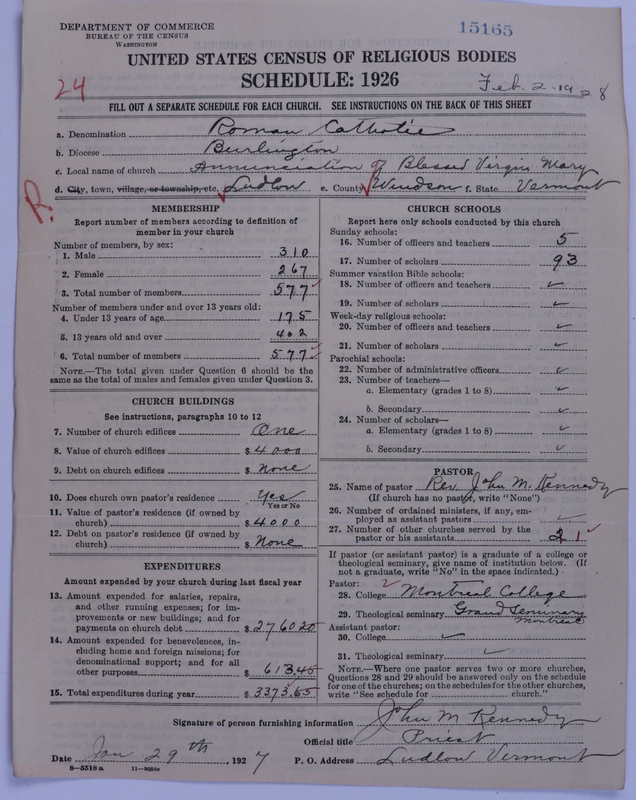 DEPARTMENT OF COMMERCE
BUREAU OF THE CENSUS
WASHINGTON
15165
UNITED STATES CENSUS OF RELIGIOUS BODIES
SCHEDULE: 1926
24
Feb. 2. 1928
FILL OUT A SEPARATE SCHEDULE FOR EACH CHURCH. SEE INSTRUCTIONS ON THE BACK OF THIS SHEET
a. Denomination Roman Catholic
b. Diocese Burlington
c. Local name of church Annunciation of Blessed Virgin Mary
d. City, town, village, or township, etc. Ludlow e. County Windsor f. State Vermont
R.
MEMBERSHIP
Report number of members according to definition of
member in your church
Number of members, by sex:
1. Male 310
2. Female 267
3. Total number of members 577
Number of members under and over 13 years old:
4. Under 13 years of age 175
5. 13 years old and over 402
6. Total number of members 577
NOTE.—The total given under Question 6 should be
same as the total of males and females given under Question 3.
CHURCH BUILDINGS
See instructions, paragraphs 10 to 12
7. Number of church edifices One
8. Value of church edifices $ 4000
9. Debt on church edifices $ None
10. Does church own pastor's residence Yes
Yes or No
11. Value of pastor's residence (if owned by
church) $ 4000
12. Debt on pastor's residence (if owned by
church) $ None
EXPENDITURES
Amount expended by your church during last fiscal year
13. Amount expended for salaries, repairs,
and other running expenses; for im-
provements or new buildings; and for
payments on church debt $ 2760 20
14. Amount expended for benevolences, in-
cluding home and foreign missions; for
denominational support; and for all
other purposes $ 613.45
15. Total expenditures during year $ 3373.65
CHURCH SCHOOLS
Report here only schools conducted by this church
Sunday schools:
16. Number of officers and teachers 5
17. Number of scholars 93
Summer vacation Bible schools:
18. Number of officers and teachers ✓
19. Number of scholars ✓
Week-day religious schools:
20. Number of officers and teachers ✓
21. Number of scholars ✓
Parochial schools:
22. Number of administrative officers ✓
23. Number of teachers—
a. Elementary (grades 1 to 8) ✓
b. Secondary ✓
24. Number of scholars—
a. Elementary (grades 1 to 8) ✓
b. Secondary ✓
PASTOR
25. Name of pastor Rev. John M. Kennedy
(If church has no pastor, write "None")
26. Number of ordained ministers, if any, em-
ployed as assistant pastors ✓
27. Number of other churches served by the
pastor or his assistants 1
If pastor (or assistant pastor) is a graduate of a college or
theological seminary, give name of institution below. (If
not a graduate, write "No" in the space indicated.)
Pastor:
28. College Montreal College
29. Theological seminary Grand Seminary
Montreal
Assistant pastor:
30. College ✓
31. Theological seminary ✓
NOTE.—Where one pastor serves two or more churches,
Questions 28 and 29 should be answered only on the schedule
for one of the churches; on the schedules for the other churches,
write "See schedule for church."
Signature of person furnishing information John M Kennedy
Official title Priest
Date Jan 29th, 1927 P. O. Address Ludlow Vermont
8—5518a